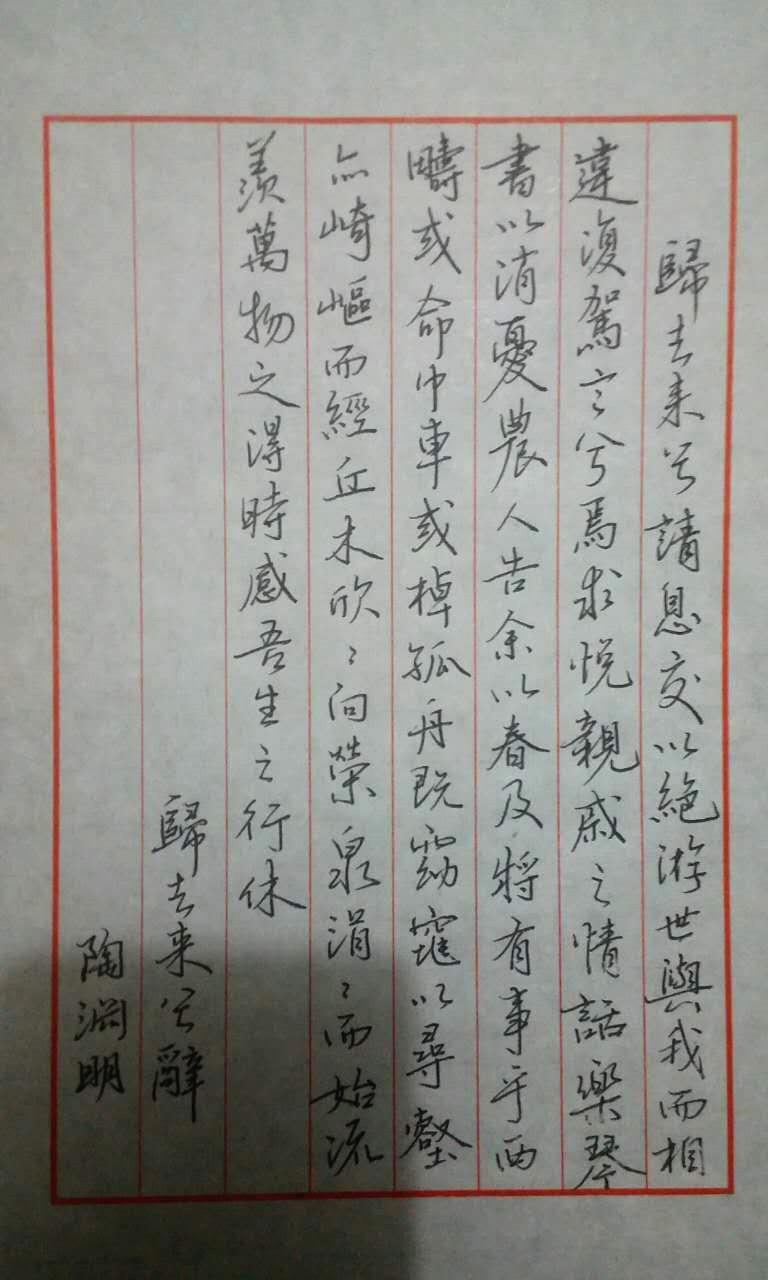 歸去来兮請息交以絕游世與我而相
違復駕言兮焉求悦親戚之情話樂琴
書以消憂農人告余以春及將有事乎西
疇或命巾車或棹孤舟既窈窕以尋壑
亦崎嶇而經丘木欣〻向榮泉涓〻而始流
羨萬物之得時感吾生之行休
歸去来兮辭
陶淵明